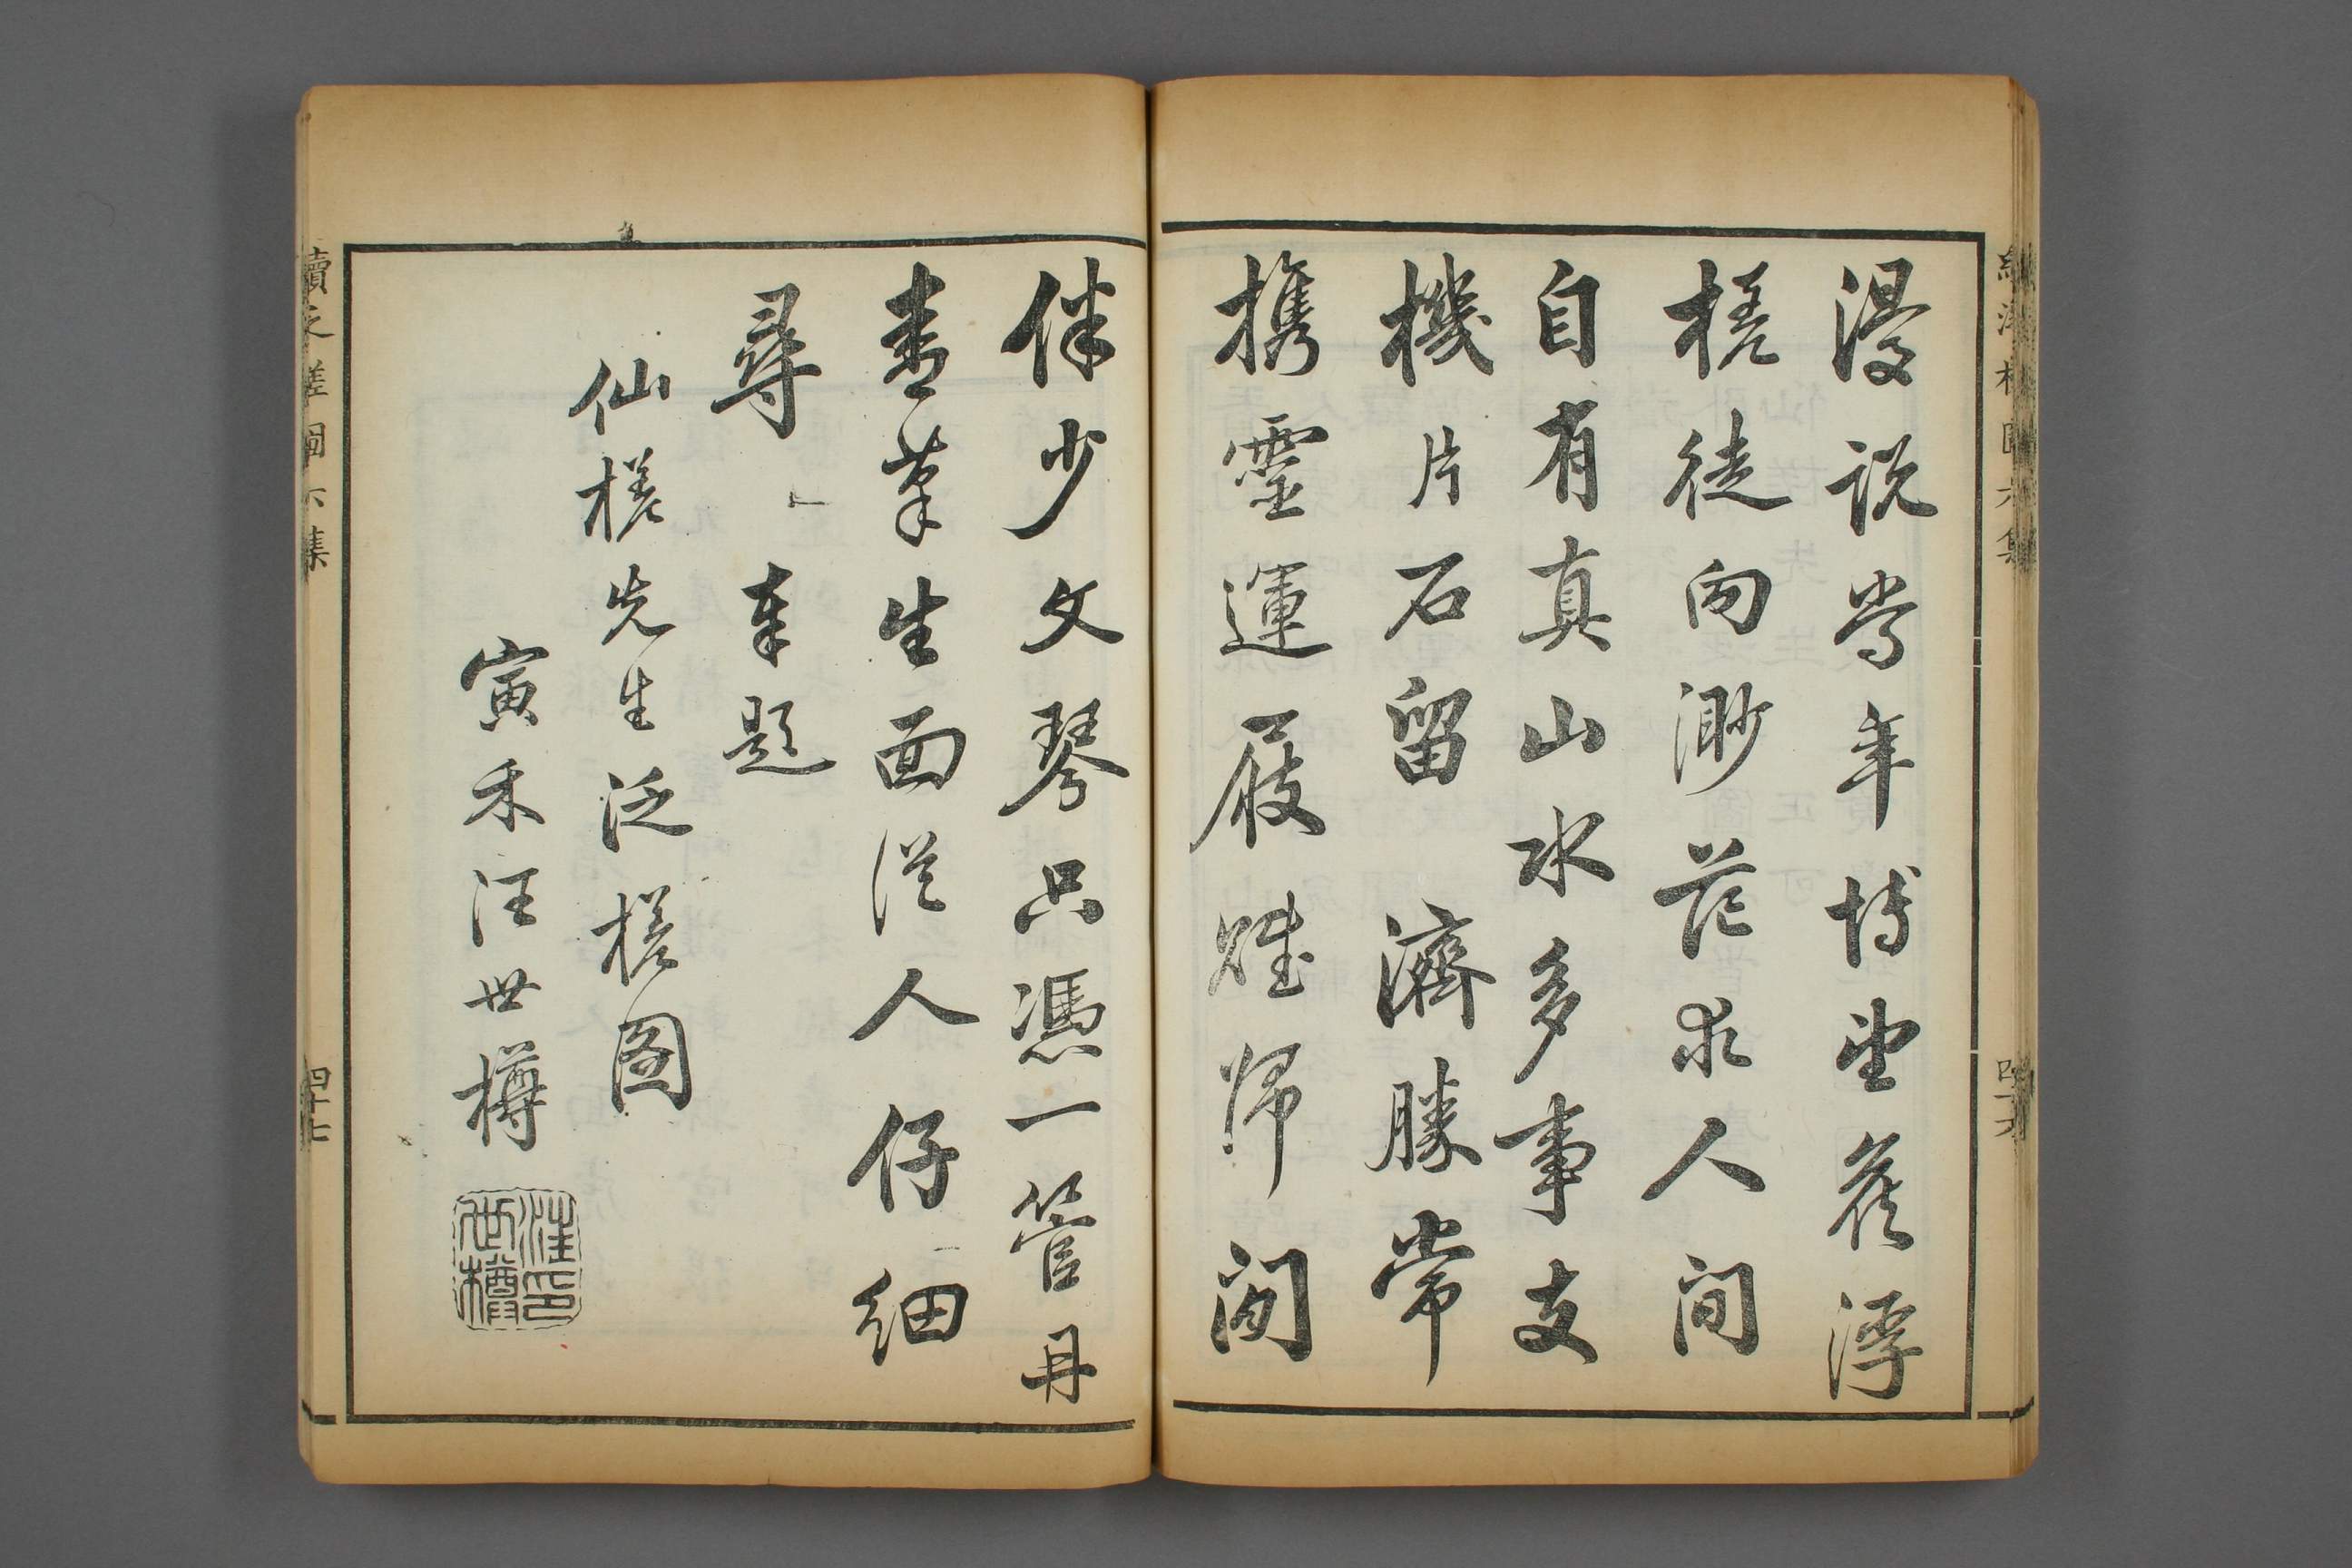 續泛槎圖六集
四十六
漫說當年博望矦浮
槎徒向渺茫求人間
自有真山水多事支
機片石留 濟勝常
携靈運屐賦歸閒
伴少文琴只憑一管丹
青筆生面從人仔細
尋 奉題
仙槎先生泛槎图
寅禾汪世樽
汪印世樽
續泛槎圖六集
四十七